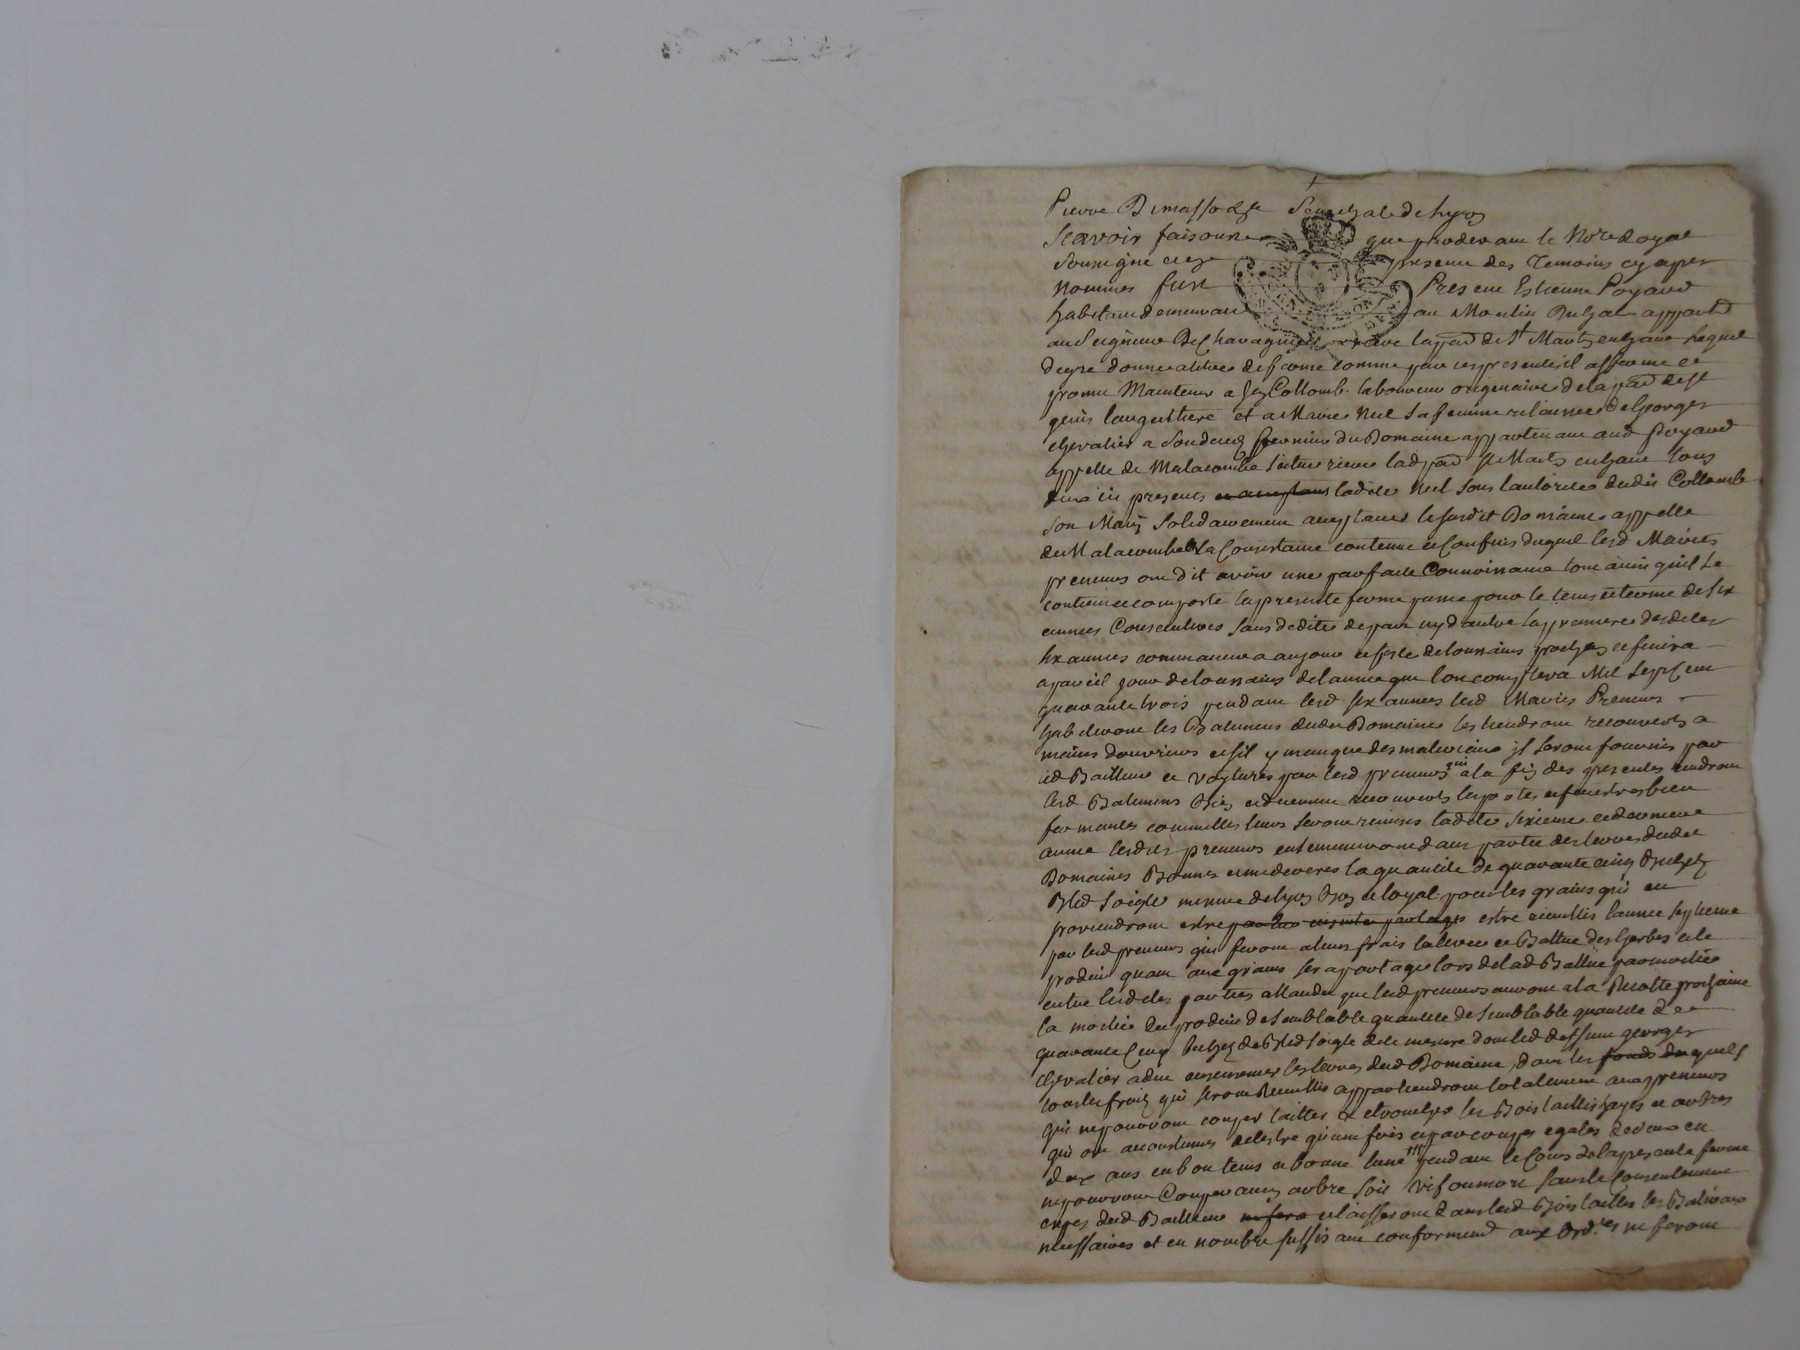 Pierre Dimasso Senechal de Lyon
Scavoir faisons que pardevant le No.re Royal
soussigné et en presence des Temoins cy apres
nommés fust Present Estienne Poyard
habitant demeurant au Moulin appart
au Seigneur De Chavagnieu par de St Martin en haut Lequel
de gre donne a titre de ferme comme par ces presentes il afferme et
promet Maintenir a Collomb laboureur originaire de la par de St
genis largentiere et a Marie Nel sa femme de Georges
chevalier a fermier du Domaine appartenant aud Poyard
appellé de Malacombe situé riere lad par St Martin en haut tous
deux icy presents et acceptans ladite Nel sous lautorité dudit Collomb
son Mary solidairement acceptants le susdit Domaine appellé
de Malacombe La Consistance contenue et Confins duquel lesd Mariés
preneurs ont dit avoir une parfaite Connoissance tout ainsi quil se
contient et comporte la presente ferme passée pour le tems et terme de six
années Consecutives sans dedite de part ny d'autre la premiere desdites
six années commancera au jour et feste de toussaints prochain et finira
a pareil jour de toussaints de lannée que lon comptera Mil Sept Cent
quarante trois pendant lesd six années lesd Mariés Preneurs
habiteront les Batimens dudit Domaine les tiendront recouverts a
mains douvriers et sil y manque des materiaux ils seront fournis par
led Bailleur et voiturés par lesd preneurs qui a la fin des presentes rendront
lesd Batimens bien et duement recouverts les portes et fenestres bien
fermantes comme elles leurs seront remises ladite sixieme et derniere
année lesdits preneurs ensemenceront dans partie des terres dudit
Domaine Bonnes et la quantité de quarante cinq Bichets
Bled Soigle mesure de Lyon bon et loyal pour les grains qui en
proviendront estre partagés estre cueillis lannée septieme
par lesd preneurs qui feront a leurs frais la levée et Battue des Gerbes et le
produit quant aux grains sera partagé lors de lad Battue par moitié
entre lesdites parties attandu que lesd preneurs auront a la Recolte prochaine
la moitié du produit de semblable quantité de semblable quantité de
quarante Cinq Bichets de Bled Soigle dite mesure dont led georges
chevalier a du ensemencer les terres dud Domaine, dont les fonds duquels
tous les fruits qui seront Recueillis appartiendront totalement auxd preneurs
qui ne pourront couper tailler et les Bois taillis hayes et arbres
qui ont accoutumés de lestre quune fois et par coupes egales de deux en
deux ans en bon tems et bonne lune pendant le Cours de la presente ferme
ne pourront Couper aucun arbre soit vif ou mort sans le Consentement
expres dud Bailleur ne sera et laisseront dans lesd Bois taillis les Baliveaux
necessaires et en nombre suffisant conformemt aux Ord.ces ne feront